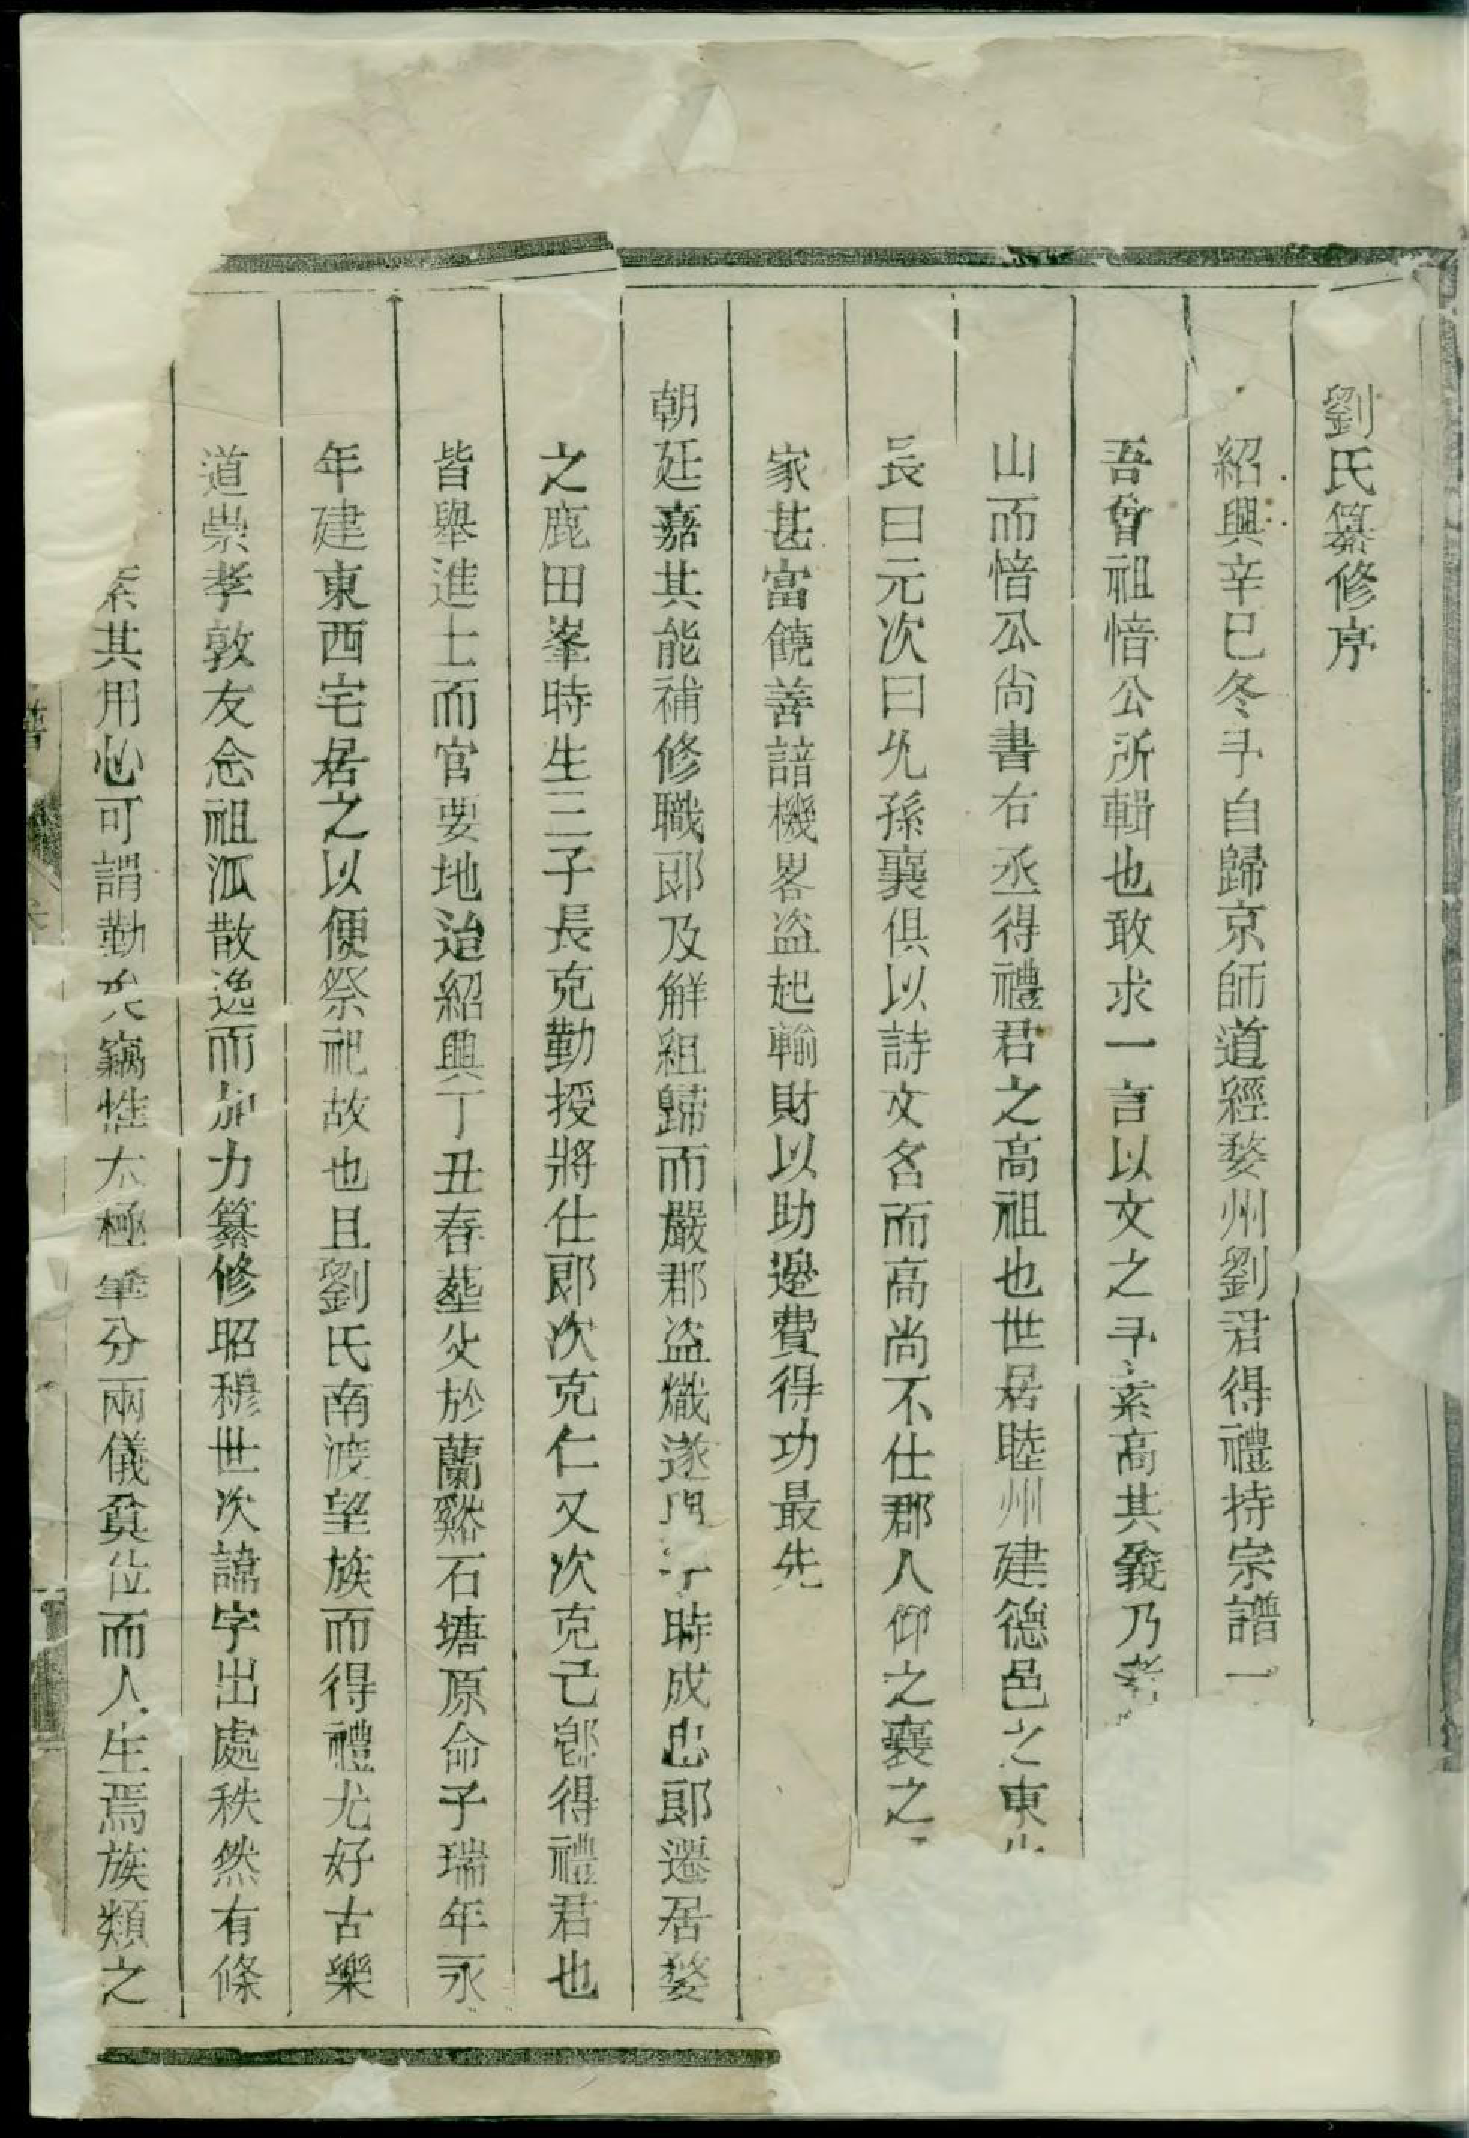 劉氏纂修序
紹興辛巳冬予自歸京師道經婺州劉君得禮持宗譜一
吾曾祖愔公所輯也敢求一言以文之予素高其義乃考
山而愔公尚書右丞得禮君之高祖也世居睦州建德邑之東
長曰元次曰允孫襄俱以詩文名而高尚不仕郡人仰之襄之
家甚富饒善諳機畧盜起輸財以助邊費得功最先
朝廷嘉其能補修職郎及解組歸而嚴郡盜熾遂時成忠郎遷居婺
之鹿田峯時生三子長克勤授將仕郎次克仁又次克己卽得禮君也
皆舉進士而官要地迨紹興丁丑春塟父於蘭谿石塘原命子瑞年永
年建東西宅居之以便祭祀故也且劉氏南渡望族而得禮尤好古樂
道崇孝敦友念祖派散逸而加力纂修昭穆世次諱字出處秩然有條
其用心可謂勤矣竊惟太極肇分兩儀奠位而人生焉族類之